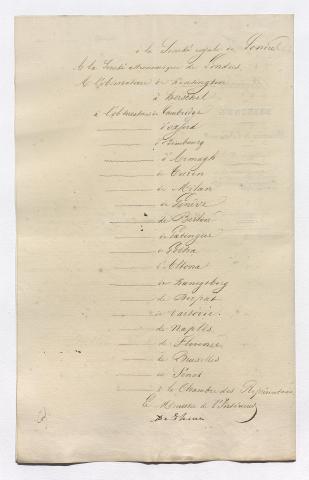 à la Société royale de Londres
A la Société astronomique de Londres
A l'observatoire de Kensington
à Herschel
à l'observatoire de Cambridge
d'oxford
d'Edimbourg
d'Armagh
de Turin
de Milan
de Genève
de Berlin
de
de Gotha
d'Altona
de Kœnigsberg
de Dorpat
de Varsovie
de Naples
de Florence
de Bruxelles
de
à la Chambre des Représentans
Ministre de l'Intérieur